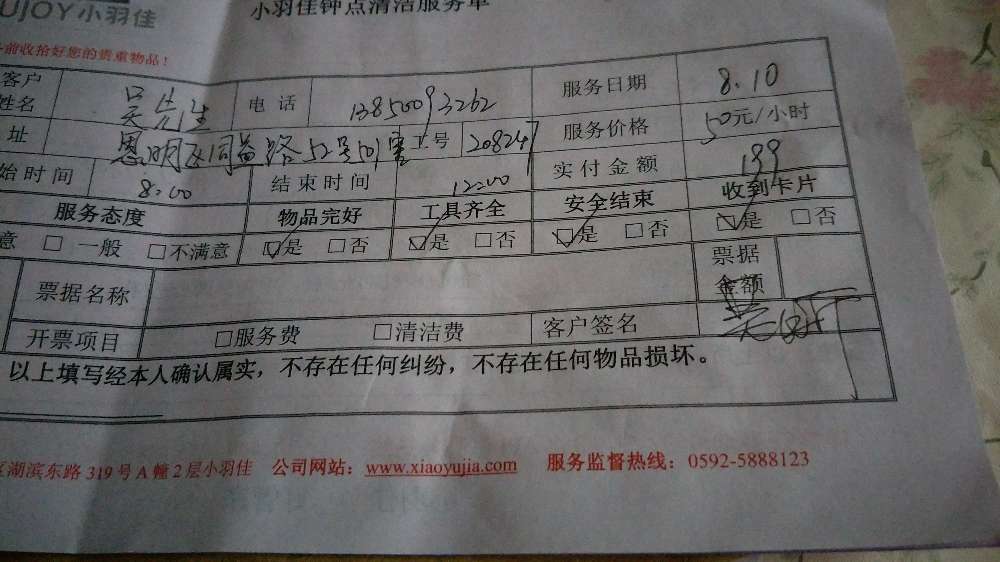 UJOY小羽佳 小羽佳钟点清洁服务单
前收拾好您的贵重物品！
客户姓名 吴先生 电话 13850093262 服务日期 8.10
址 思明区同益路52号501室 工号 208247 服务价格 50元/小时
始时间 8:00 结束时间 12:00 实付金额 199
服务态度 物品完好 工具齐全 安全结束 收到卡片
意 □ 一般 □不满意 ☑是 □否 ☑是 □否 ☑是 □否 ☑是 □否
票据名称 票据金额
开票项目 □服务费 □清洁费 客户签名
以上填写经本人确认属实，不存在任何纠纷，不存在任何物品损坏。
区湖滨东路319号A幢2层小羽佳 公司网站：www.xiaoyujia.com 服务监督热线：0592-5888123